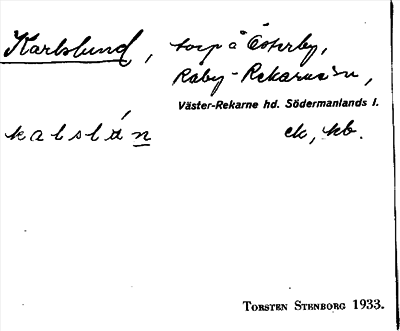 Karlslund, torp å Österby,
Råby-Rekarne sn,
Väster-Rekarne hd. Södermanlands l.
ek, kb.
TORSTEN STENBORG 1933.